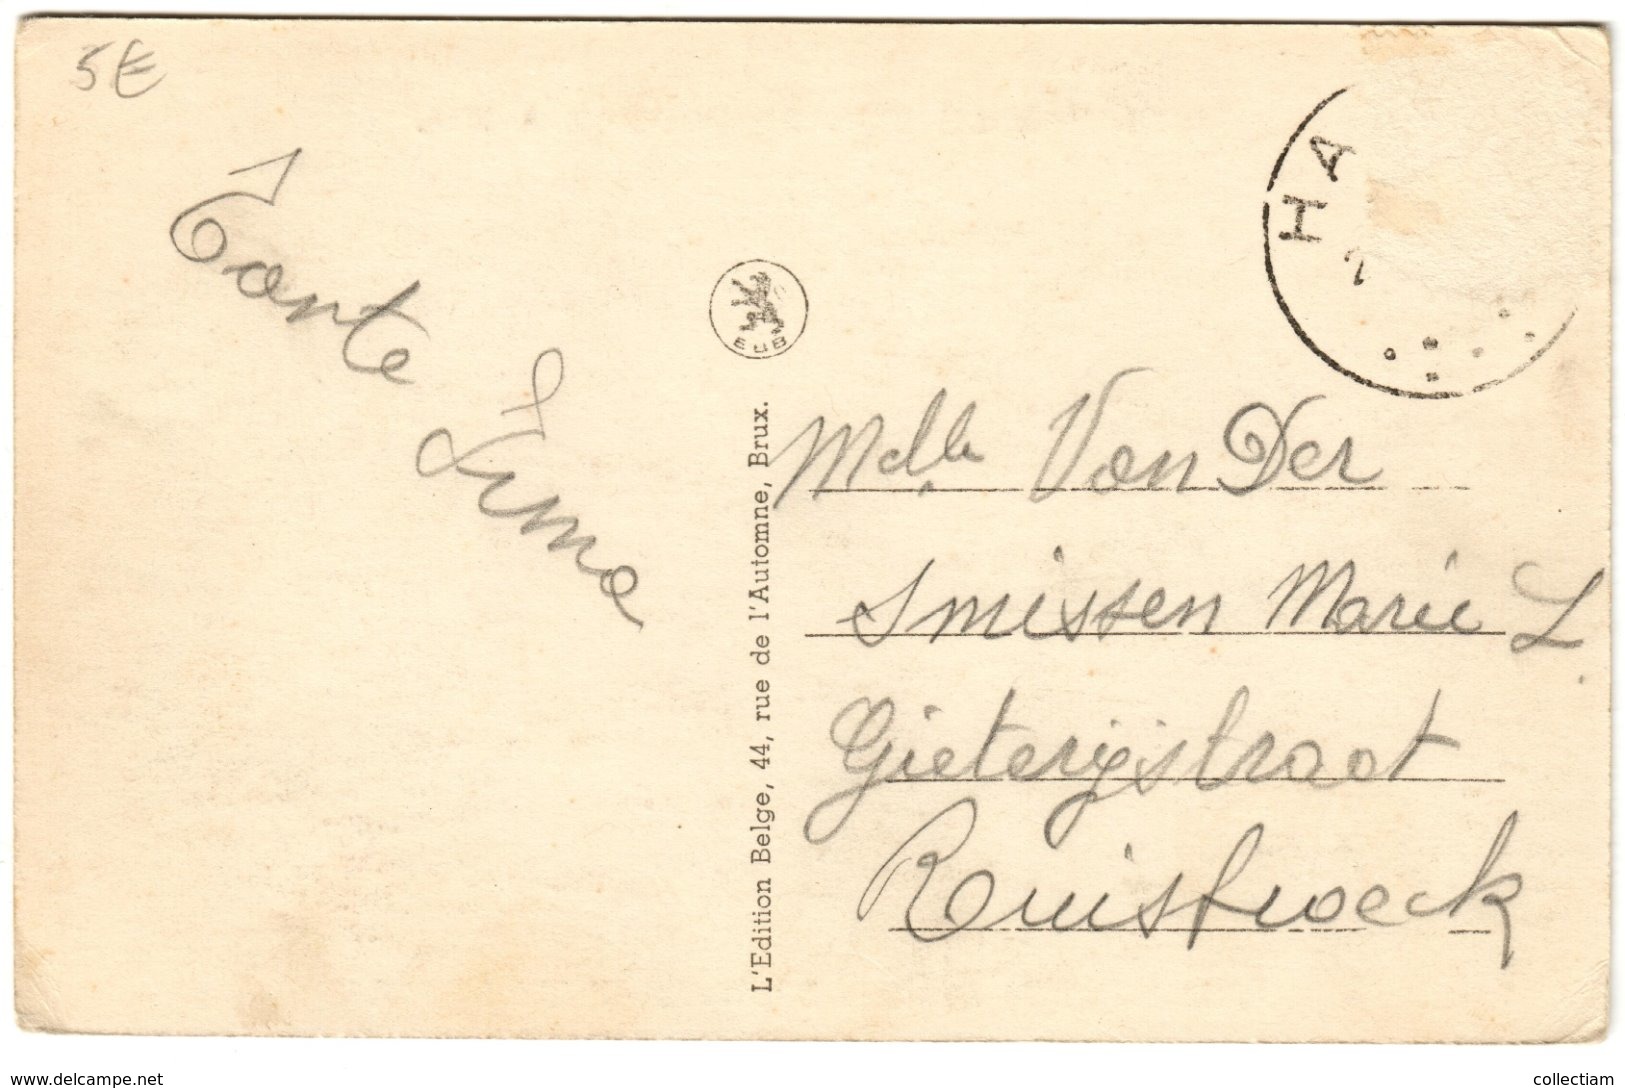 5€
Tante
Irma
EUB
L'Edition Belge, 44, rue de l'Automne, Brux.
HA
2
Melle Van Der
Smissen Marie L.
Gieterijstraat
Ruisbroeck
www.delcampe.net
collectiam